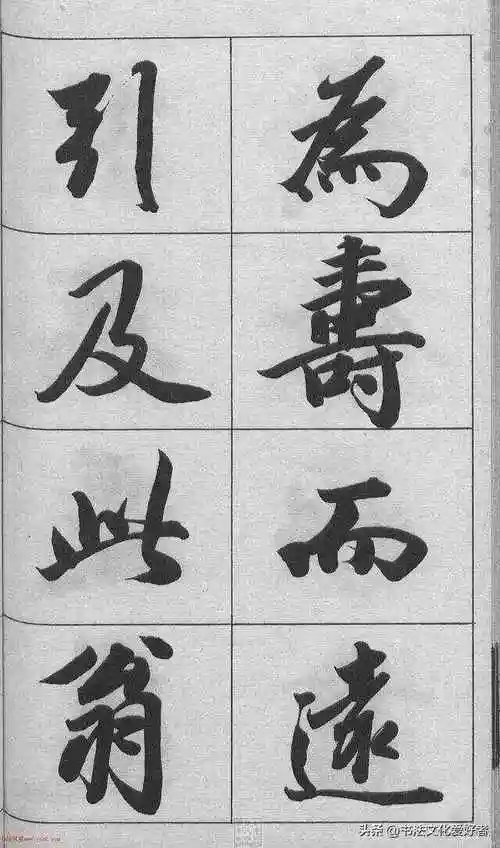 為壽而遠
引及此翁
头条@书法文化爱好者